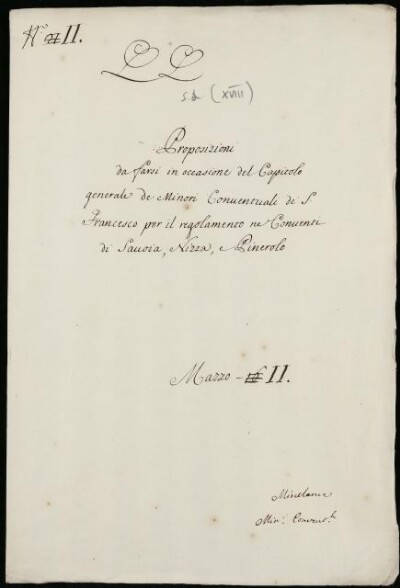 N.° II.
L L
s.d. (XVIII)
Proposizioni
da farsi in occasione del Capitolo
generale de Minori Conventuali di S.
Francesco per il regolamento ne Conventi
di Savoia, Nizza, e Pinerolo
Mazzo - II.
Min.i Convent.li